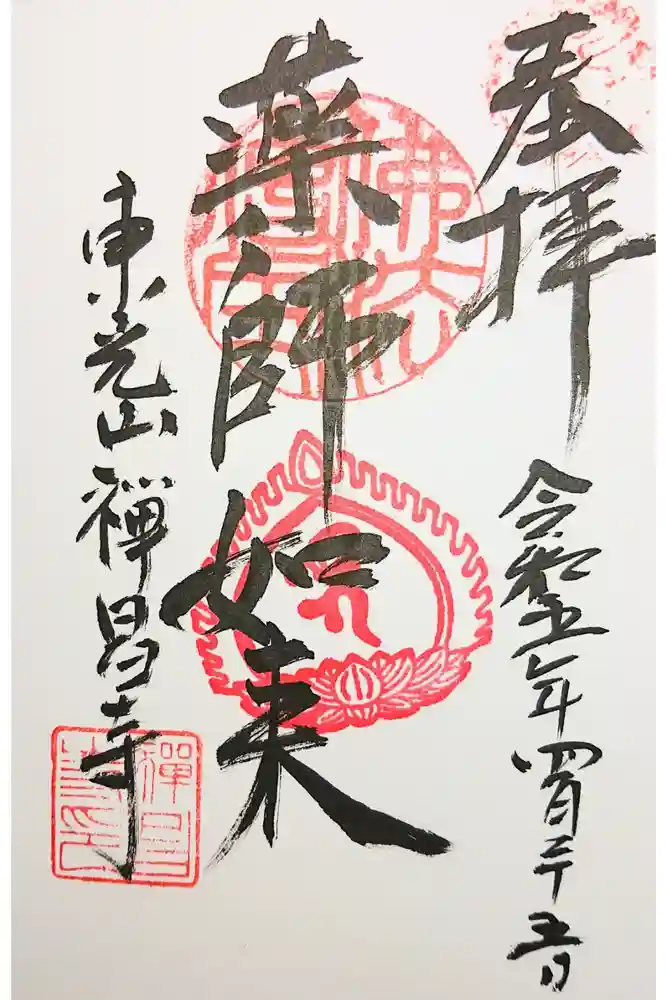 奉拝
令和五年四月二十五日
薬師如来
東光山禅昌寺
禪昌
寺印